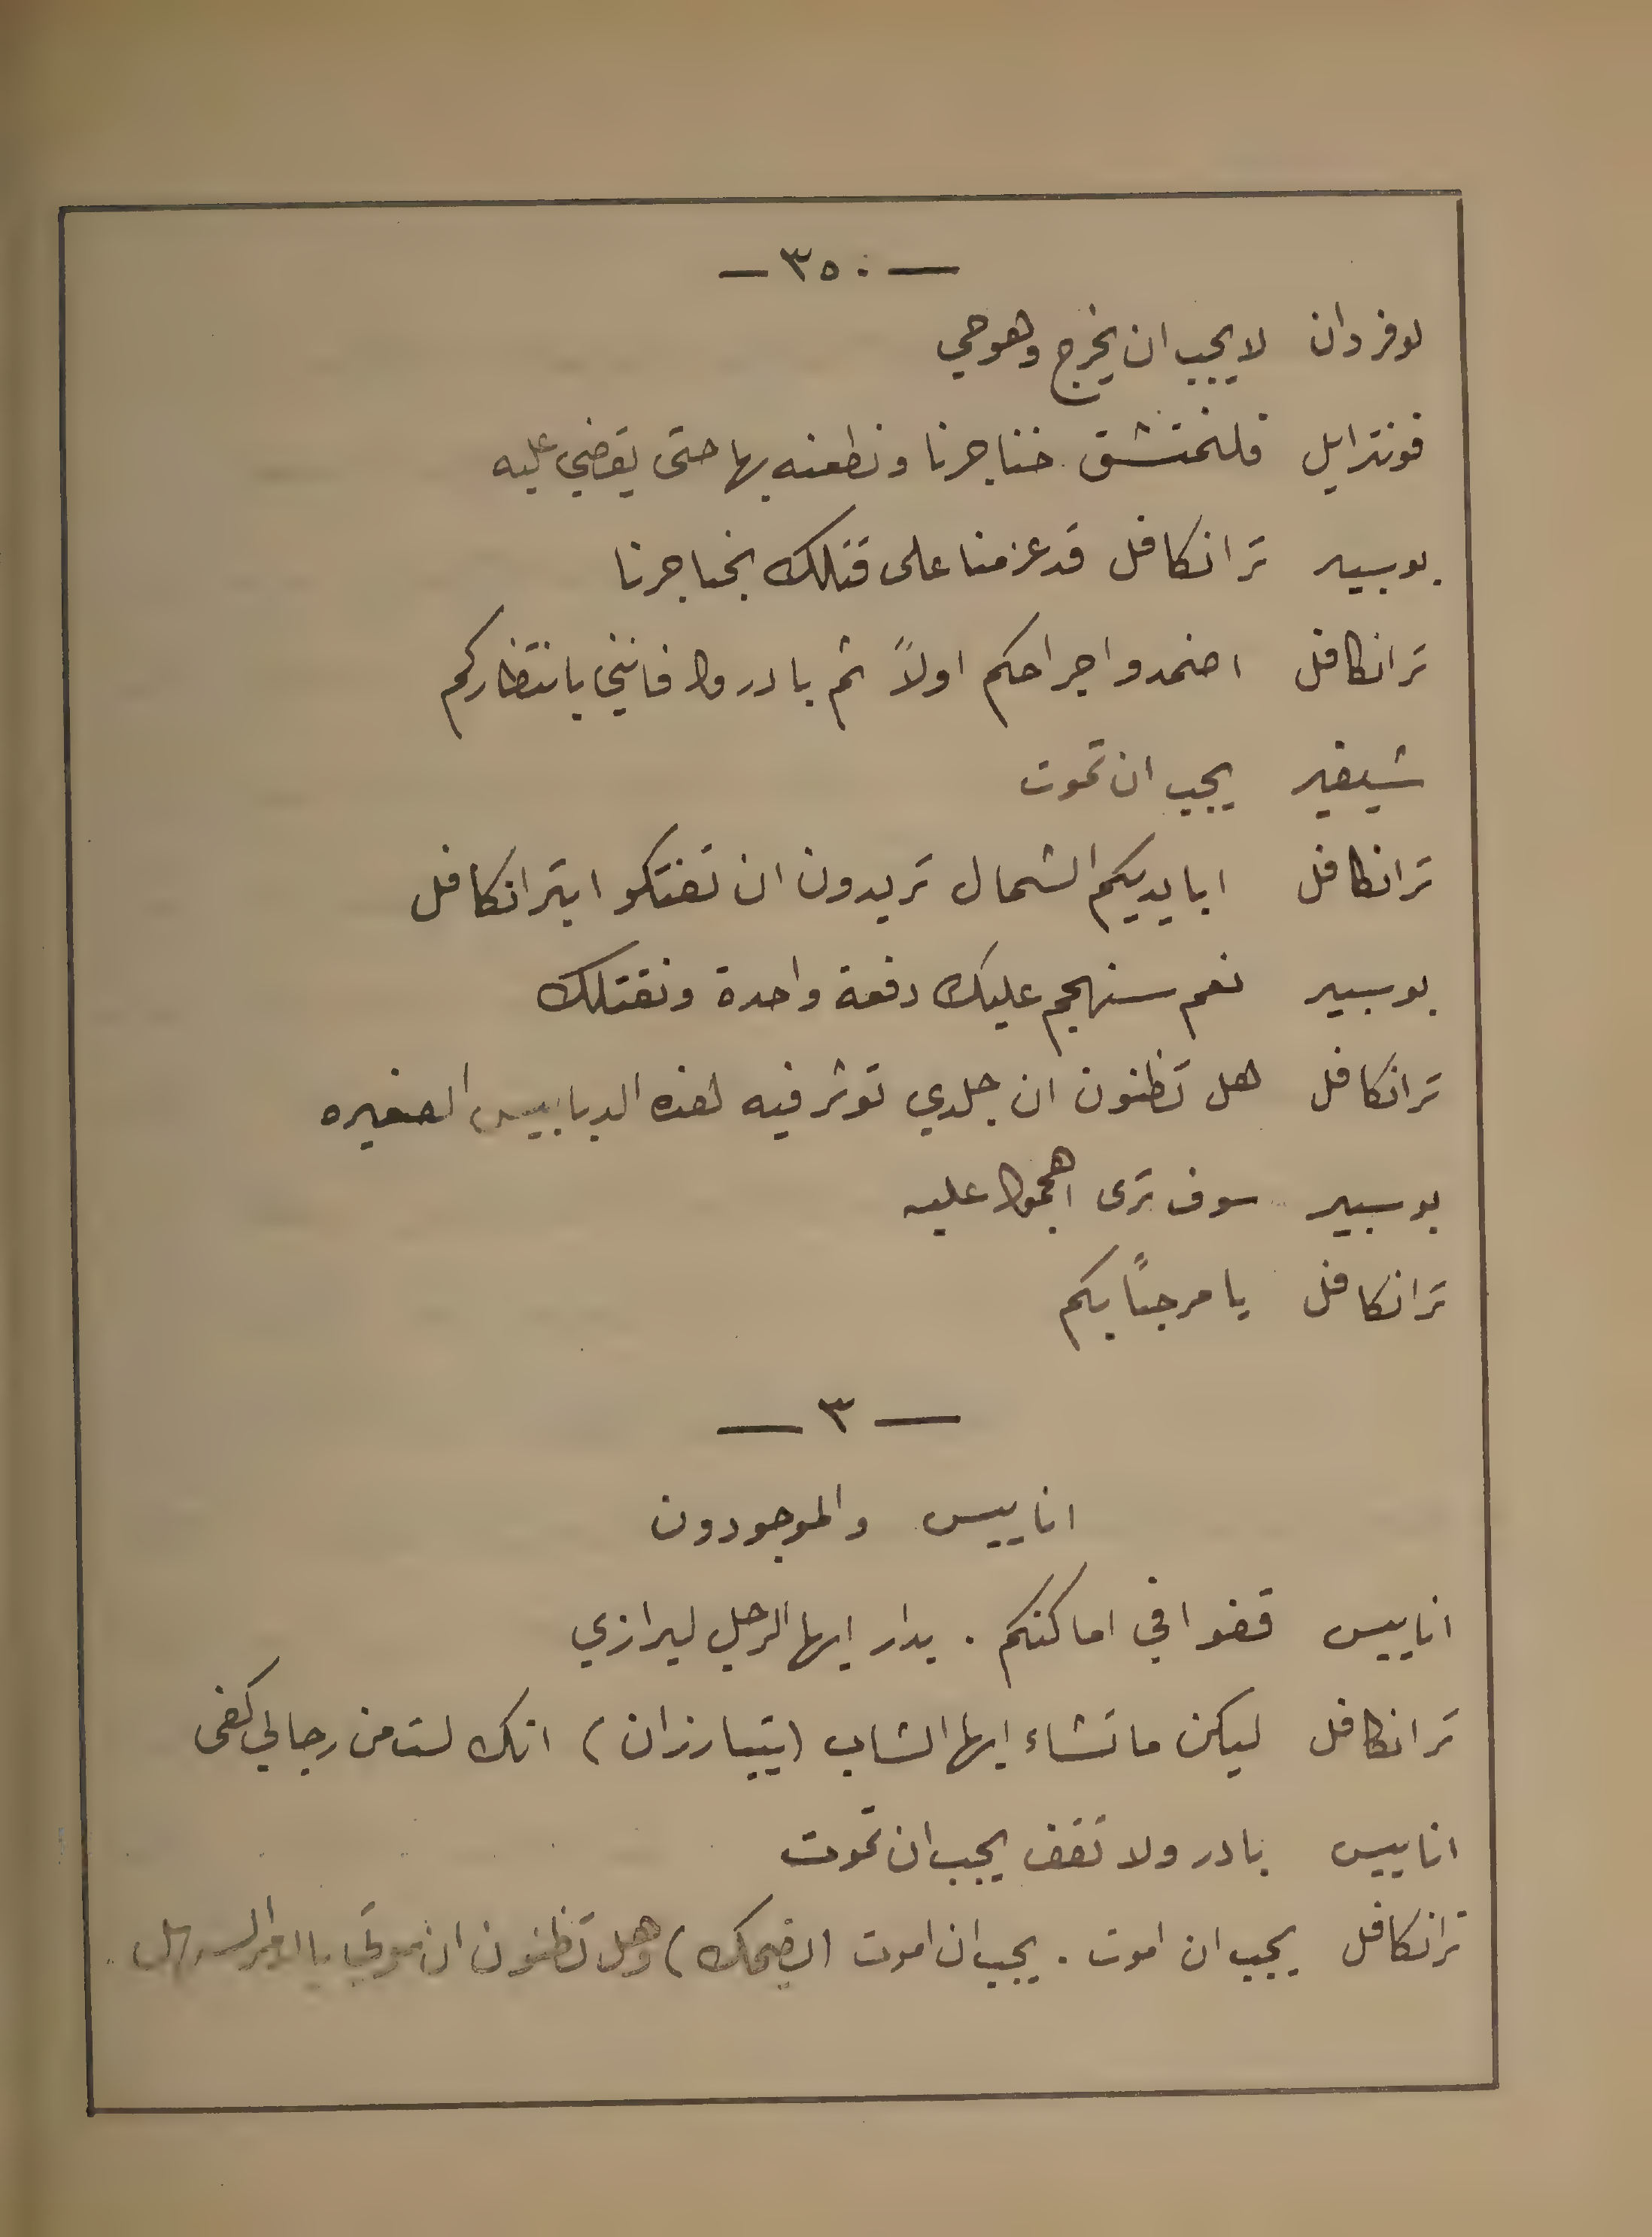 — ٣٥٠ —
لوفردان لا يجب ان يخرج وهو حي
فونترايل فلنمتشق خناجرنا ونطعنه بها حتى يقضي عليه
بوسيير ترانكافل قد عزمنا على قتلك بخناجرنا
ترانكافل اضمدوا جراحكم اولاً ثم بادروا فانني بانتظاركم
شيفير يجب ان تموت
ترانكافل ابايديكم الشمال تريدون ان تفتكوا بترانكافل
بوسيير نعم سنهجم عليك دفعة واحدة ونقتلك
ترانكافل هل تظنون ان جلدي توثر فيه هذه الدبابيس الصغيره
بوسيير سوف ترى اهجموا عليه
ترانكافل يا مرحبًا بكم
— ٣ —
اناييس والموجودون
اناييس قفوا في اماكنكم . بدار ايها الرجل لبرازي
ترانكافل ليكن ما تشاء ايها الشاب (يتبارزان) انك لست من رجالي كفى
اناييس بادر ولا تقف يجب ان تموت
ترانكافل يجب ان اموت . يجب ان اموت (يضحك) وهل تظنون ان موتي بالامر السهل .